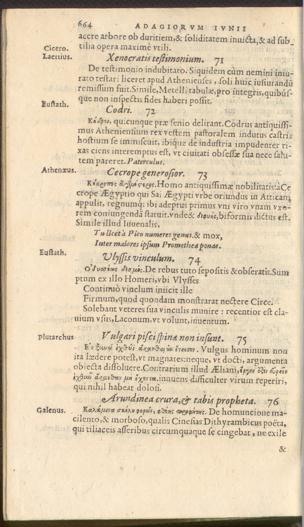 664 ADAGIORVM IVNII
accre arbore ob duritiem, & soliditatem inuicta, & ad sub-
Cicero. tilia opera maximè vtili.
Laertius. Xenocratis testimonium. 71
De testimonio indubitato. Siquidem cùm nemini iniu-
rato testari liceret apud Athenienses, soli huic iusiurandū
remissum fuit. Simile, Metelli tabulæ, pro integris, quibus-
que non inspectis fides haberi possit.
Eustath. Codri. 72
quicunque præ senio delirant. Codrus antiquissi-
mus Atheniensium rex vestem pastoralem indutus castris
hostium se immiscuit, ibique de industria impudenter ri-
xas ciens interemptus est, vt ciuitati obsessæ sua nece salu-
tem pareret. Paterculus.
Athenæus. Cecrope generosior. 73
Homo antiquissimæ nobilitatis: à Ce
crope Ægyptio qui Sai Ægypti vrbe oriundus in Atticam
appulit, regnumq; ibi adeptus primus vni viro vnam vxo-
rem coniungendā statuit. vnde & biformis dictus est.
Simile illud Iuuenalis.
Tu licet à Pico numeres genus. & mox,
Inter maiores ipsum Promethea ponas.
Eustath. Vlyssis vinculum. 74
De rebus tuto sepositis & obseratis. Sum
ptum ex illo Homeri, vbi Vlysses
Continuò vinclum iniicit ille
Firmum, quod quondam monstrarat nectere Circe.
Solebant veteres sua vinculis munire: recentior est cla-
uium vsus, Laconum, vt volunt, inuentum.
Plutarchus Vulgari pisci spinæ non insunt. 75
Vulgus hominum non
ita lædere potest, vt magnates: neque, vt docti, argumenta
obiecta dissoluere. Contrarium illud Æliani,
inuenes difficulter virum reperiri,
qui nihil habeat dolosi.
Arundinea crura, & tabis propheta. 76
Galenus. De homuncione ma-
cilento, & morboso, qualis Cinesias Dithyrambicus poëta,
qui tiliaceis asseribus circumquaque se cingebat, ne exile
&